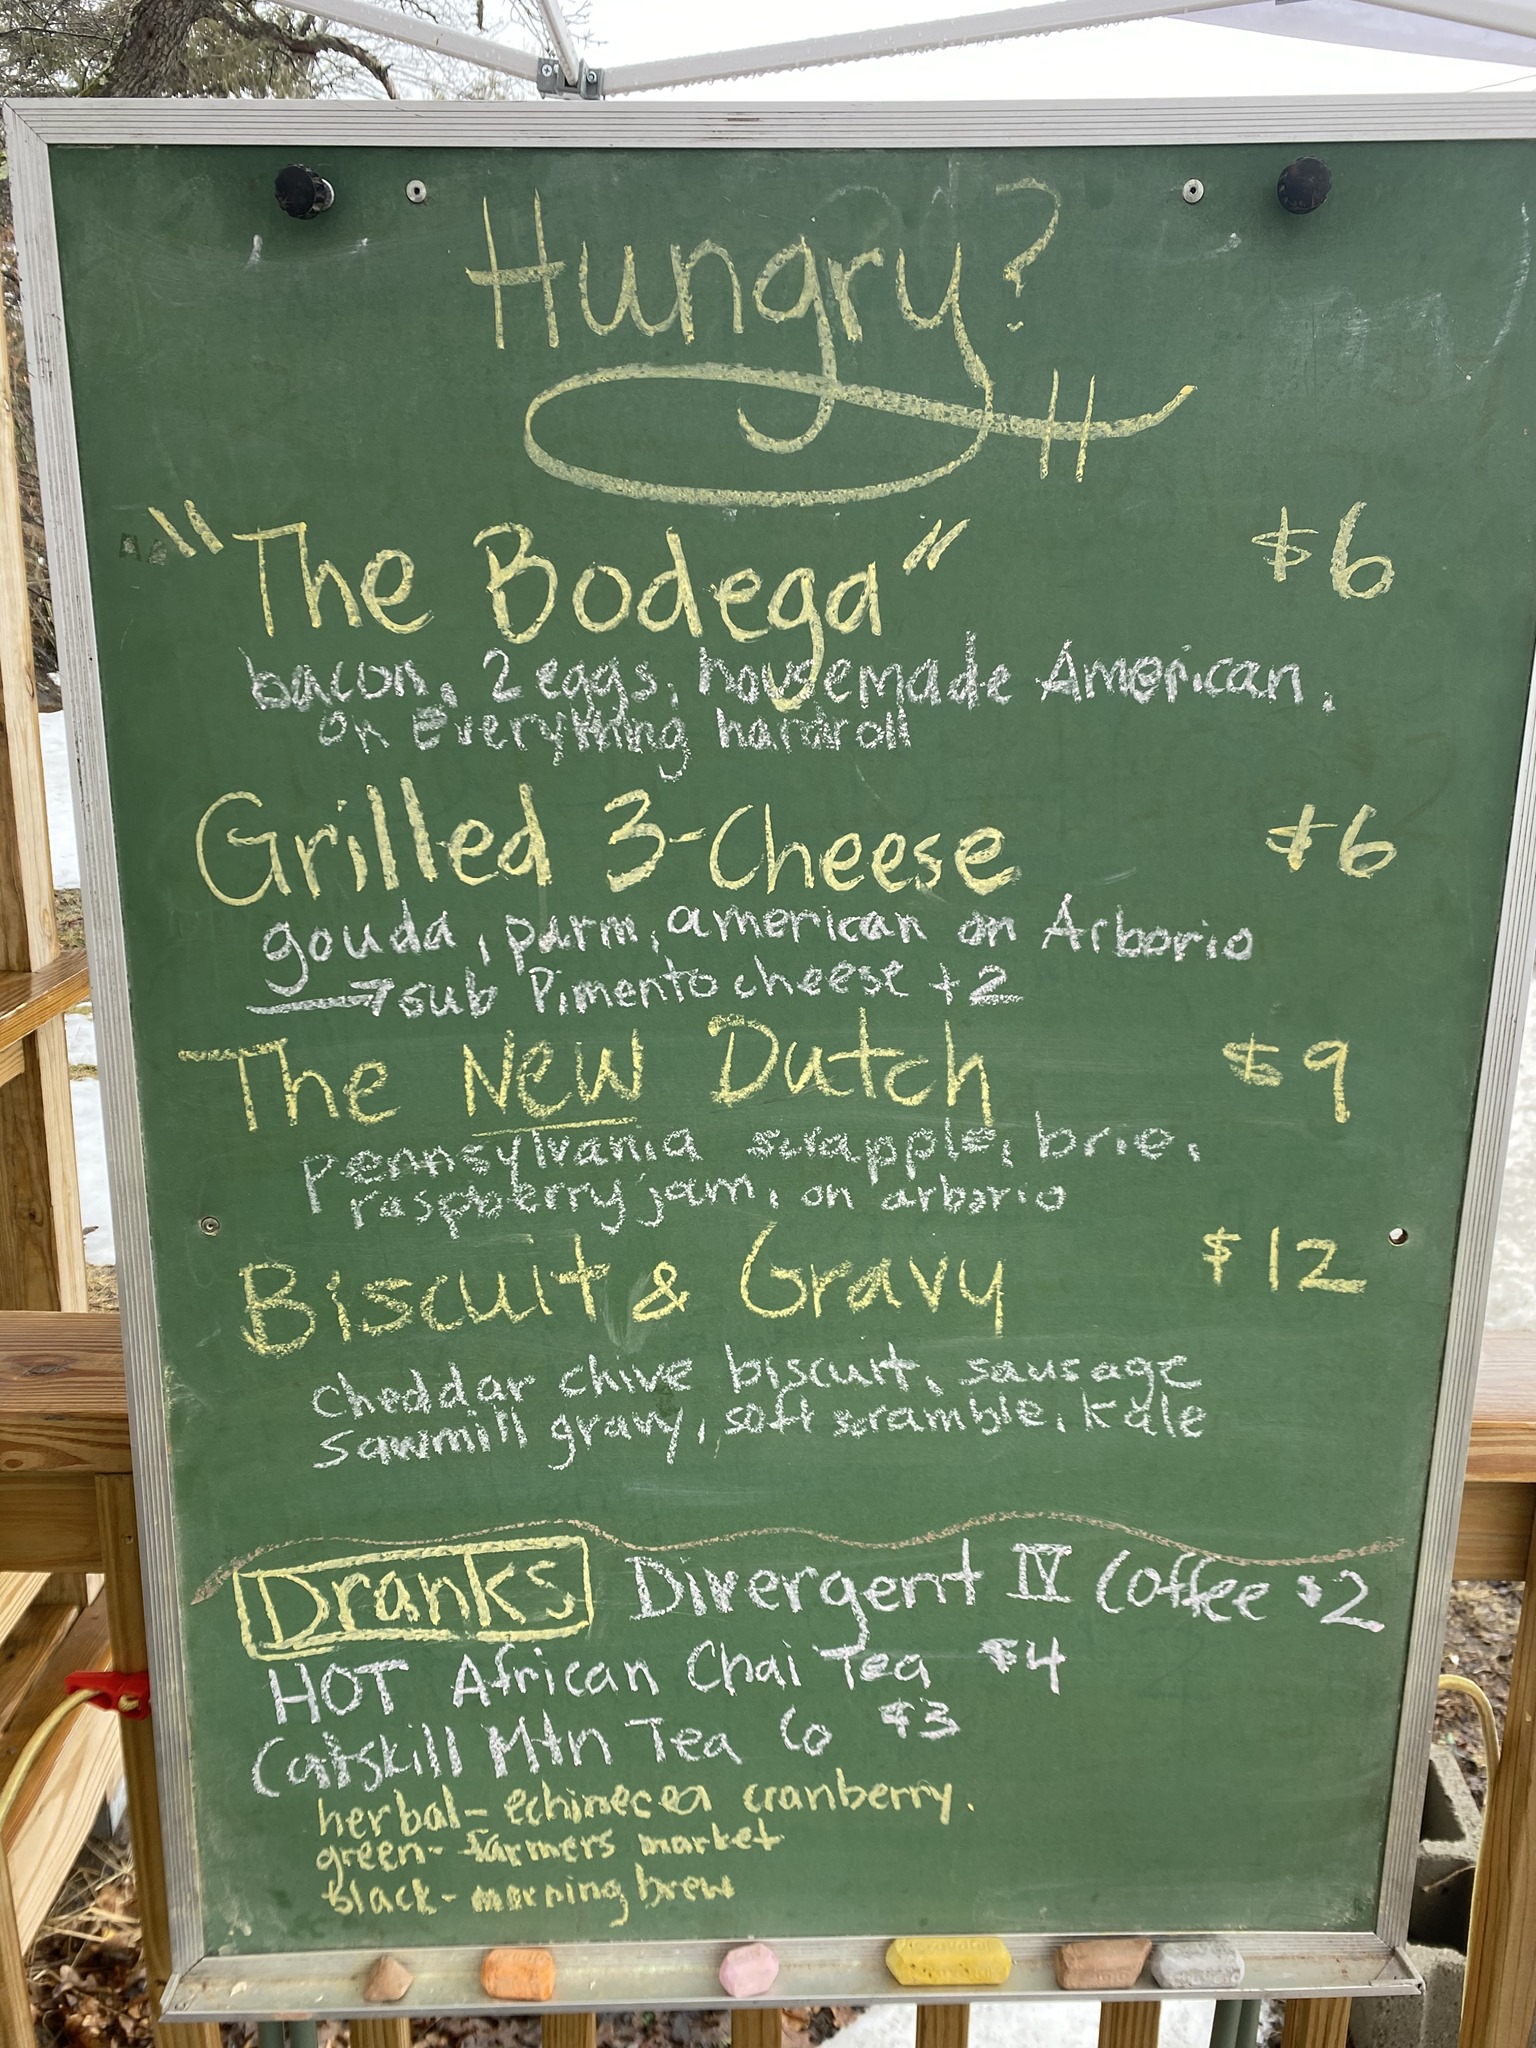 Hungry?
"The Bodega" $6
bacon, 2 eggs, housemade American,
on Everything hardroll
Grilled 3-Cheese $6
gouda, parm, american on Arborio
→ sub Pimento cheese +2
The New Dutch $9
pennsylvania scrapple, brie,
raspberry jam, on arborio
Biscuit & Gravy $12
cheddar chive biscuit, sausage
sawmill gravy, soft scramble, kale
Dranks Divergent IV Coffee $2
HOT African Chai Tea $4
Catskill Mtn Tea Co $3
herbal- echinecea cranberry.
green- farmers market
black- morning brew